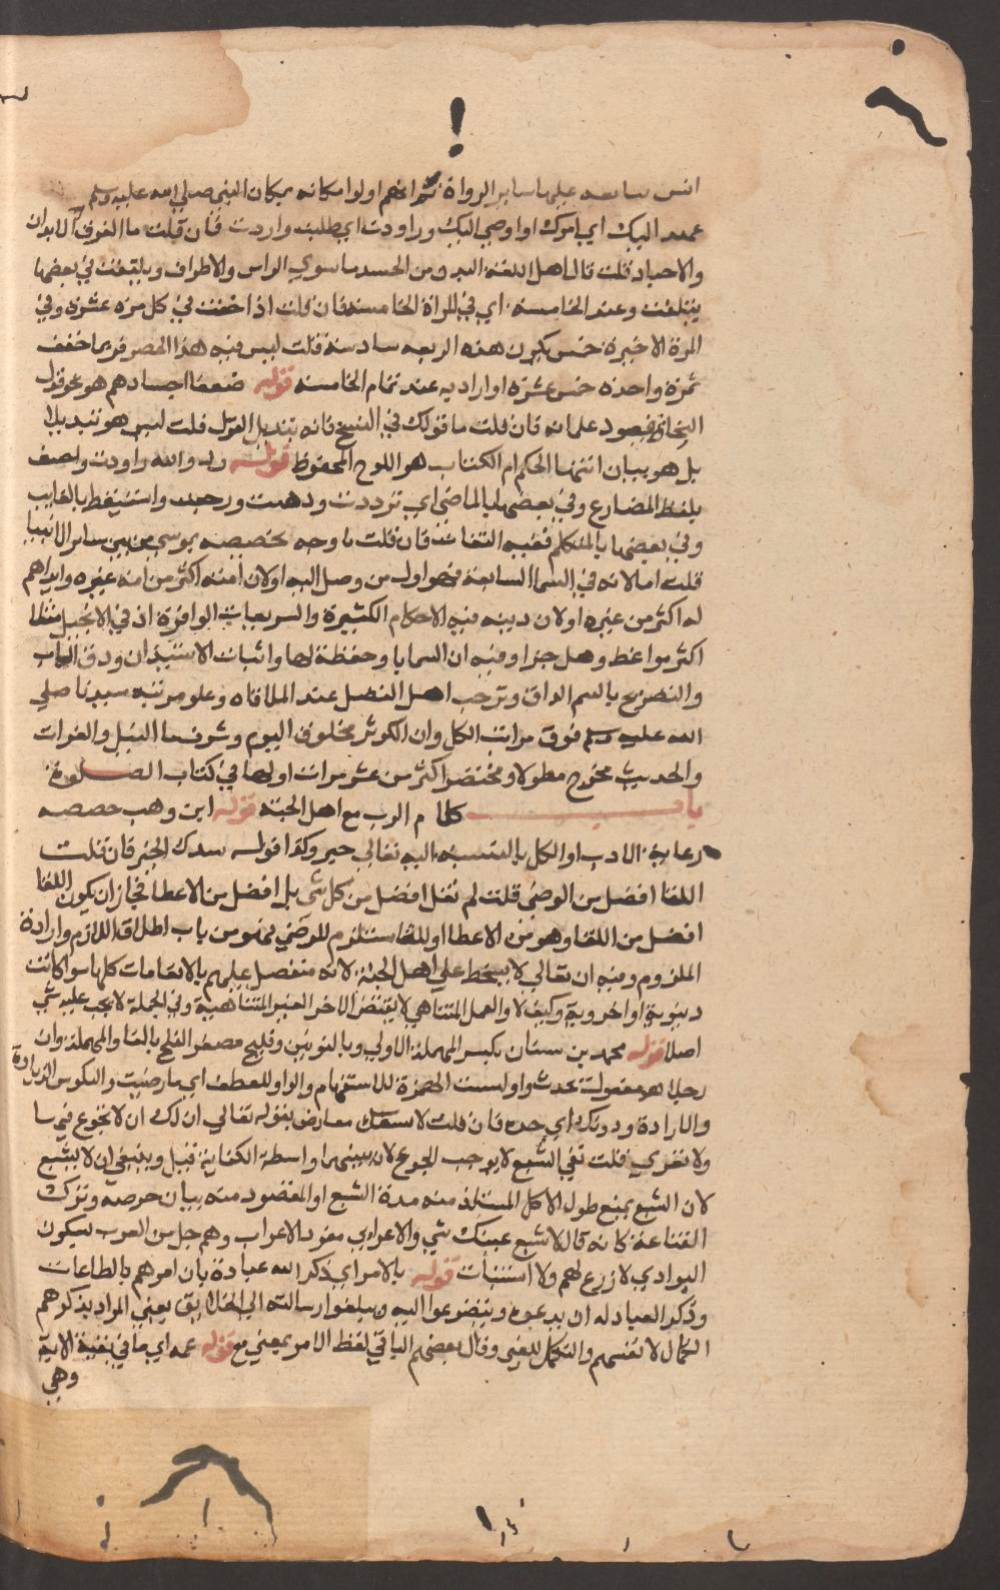 انس سابعه عليها ساير الرواة ثم انهم اولوا مكانه بمكان النبي صلى الله عليه وسلم
عهد اليك اي امرك او اوصي اليك وراودت اي طلبت واردت فان قلت ما الفرق الابدان
والاجساد قلت قال اهل اللغة البدن من الجسد ما سوي الراس والاطراف ويلتفت في بعضها
يتلفت وعند الخامسة اي في المراة الخامسة فان قلت اذا خففت في كل مرة عشرة وفي
المرة الاخيرة خمس يكون هذه الربعه سادسة قلت ليس فيه هذا الحصر فربما خفف
بمرة واحدة خمس عشرة او اراد به عند تمام الخامسة قوله ضعفا اجسادهم هو نحو قول
فان قلت ما قولك في النسخ فانه تبديل القول قلت ليس هو تبديلا
بل هو بيان انتها الحكم ام الكتاب هو اللوح المحفوظ قوله والله راودت
بلفظ المضارع وفي بعضها بالماضي اي ترددت وذهبت ورجعت واستيقظ بالغايب
وفي بعضها بالمتكلم ففيه التفات فان قلت ما وجه تخصيصه بموسي من بين ساير الانبيا
قلت اما لانه في السما السابعة فهو اول من وصل اليه او لان امته اكثر من امة غيره وايذاهم
له اكثر من غيره او لان دينه فيه الاحكام الكثيرة والتشريعات الوافرة اذ في الانجيل مثلا
اكثر مواعظ وهلم جرا وفيه ان للسما بابا وحفظة لها واثبات الاستيذان ودق الباب
والتصريح باسم الداق وترحب اهل الفضل عند الملاقاه وعلو مرتبه سيدنا صلى
الله عليه وسلم فوق مراتب الكل وان الكوثر مخلوق اليوم وشرف ما النيل والفرات
والحديث مخرج مطولا ومختصرا اكثر من عشر مرات اولها في كتاب الصلوة
باب كلام الرب مع اهل الجنة قوله ابن وهب خصصه
رعاية الادب او الكل بالنسبة اليه تعالي خير وكذا قوله بيدك الخير فان قلت
اللقا افضل من الرضي قلت لم يقل افضل من كل شي بل افضل من الاعطا فجاز ان يكون اللقا
افضل من اللقا وهو من الاعطا او اللقا مستلزم للرضي فهو من باب اطلاق اللازم وارادة
الملزوم وفيه ان تعالي لا يسخط علي اهل الجنة لانه متفضل عليهم بالانعامات كلها سوا كانت
دنيوية او اخروية وكيف لا والعمل المتناهي لا يقتضي الاخر الغير المتناهية وفي الجملة لا يجب عليه شي
اصلا قوله محمد بن سنان بكسر المهملة الاولي وبالنونين وفليح مصغر الفلح بالفا والمهملة وان
رجلا هو مفعول يحدث واولست الهمزة للاستفهام والواو للعطف اي ما رضيت
ودونك اي خده فان قلت لا يشبعك معارض بقوله تعالي ان لك ان لا تجوع فيها
ولا تعري قلت نفي الشبع لا يوجب الجوع لان بينهما واسطة الكفاية قيل وينبغي ان لا يشبع
لان الشبع يمنع طول الاكل المستلذ منه مدة الشبع او المقصود منه بيان حرصه وترك
القناعة كانه قال لا تشبع عينك شي والاعرابي مفرد الاعراب وهم جيل من العرب يسكنون
البوادي لا زرع لهم ولا استنبات قوله بالامر اي ذكر الله عباده بان امرهم بالطاعات
وذكر العباد له ان يدعوه ويتضرعوا اليه ويبلغوا رسالته الي الخلايق يعني المراد بذكرهم
الكمال لانفسهم والتكميل للغير وقال بعضهم الباقي لفظ الامر بمعني مع قوله غمه اي ما في بقية الاية
وهي